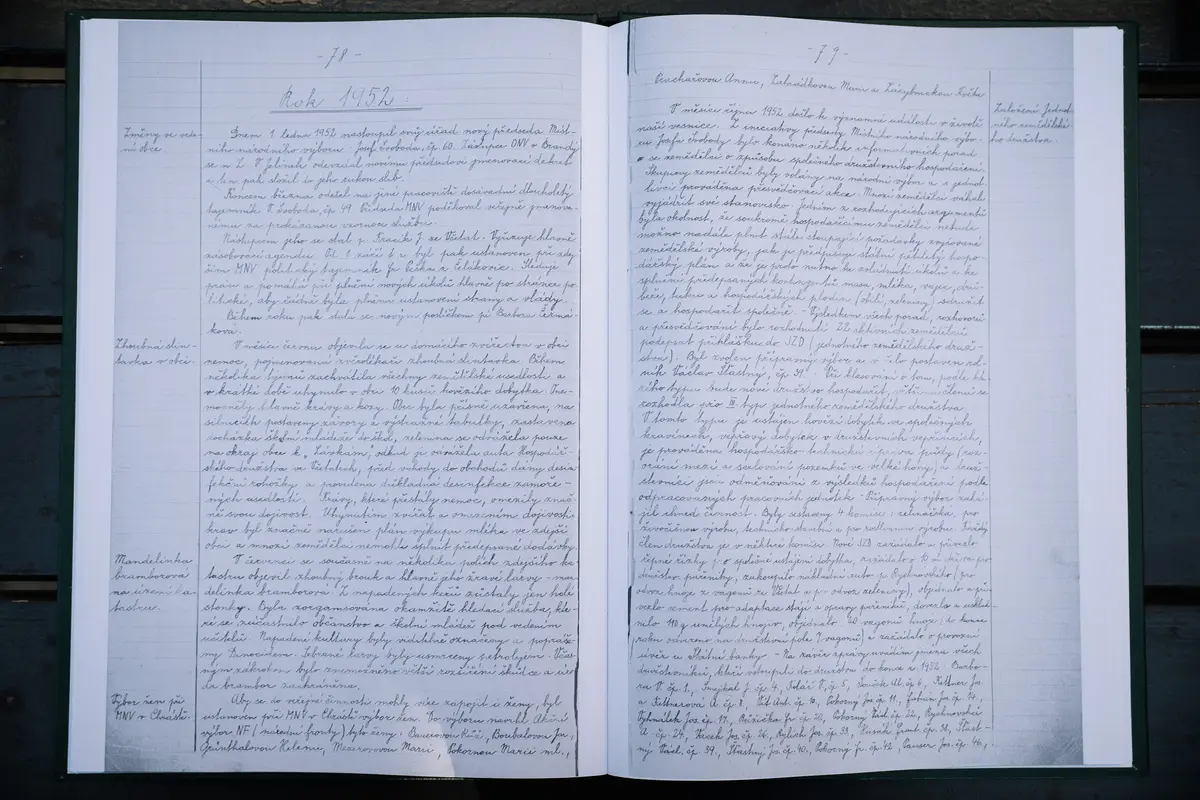 - 78 -
Rok 1952.
Změny ve vede-
ní obce.
Dnem 1. ledna 1952 nastoupil svůj úřad nový předseda Míst-
ního národního výboru Josef Svoboda, čp. 60. Zástupce ONV v Brandý-
se n. L. V. Jelínek odevzdal novému předsedovi jmenovací dekret
a ten pak složil do jeho rukou slib.
Koncem března odešel na jiné pracoviště dosavadní dlouholetý
tajemník V. Svoboda, čp. 49. Předseda MNV poděkoval veřejně jmenova-
nému za prokázanou vzornou službu.
Nástupcem jeho se stal p. J. ze Všetat. Vyřizuje hlavně
zásobovací agendu. Od 1. září t. r. byl pak ustanoven při zdej-
ším MNV politický tajemník Jos. z Čelákovic. Sleduje
práci a pomáhá při plnění nových úkolů hlavně po stránce po-
litické, aby řádně byla plněna ustanovení strany a vlády.
Během roku pak stala se novým poslíčkem pí Barbora Čermá-
ková.
Zhoubná slin-
tavka v obci.
V měsíci červnu objevila se u domácího zvířectva v obci
nemoc, pojmenovaná zvěrolékaři zhoubná slintavka. Během
několika týdnů zachvátila všechny zemědělské usedlosti a
v krátké době uhynulo v obci 10 kusů hovězího dobytka. One-
mocněly hlavně krávy a kozy. Obec byla přísně uzavřena, na
silnicích postaveny závory a výstražné tabulky, zastavena
docházka školní mládeže do škol, zelenina se odvážela pouze
na okraj obce k „Lávkám", odkud je odvážela auta Hospodář-
ského družstva ve Všetatech, před vchody do obchodů dány desin-
fekční rohožky a provedena důkladná desinfekce zamoře-
ných usedlostí. Krávy, které přestály nemoc, omezily znač-
ně svou dojivost. Uhynutím zvířat a omezením dojivosti
krav byl značně narušen plán výkupu mléka ve zdejší
obci a mnozí zemědělci nemohli splnit předepsané dodávky.
Mandelinka
bramborová
na území ka-
tastru.
V červenci se současně na několika polích zdejšího ka-
tastru objevil zhoubný brouk a hlavně jeho žravé larvy - man-
delinka bramborová. Z napadených keřů zůstaly jen holé
stonky. Byla zorganisována okamžitě hledací služba, kte-
ré se zúčastnilo občanstvo a školní mládež pod vedením
učitelů. Napadené kultury byly viditelně označeny a popráše-
ny Dynocidem. Sebrané larvy byly usmrceny petrolejem. Včas-
ným zákrokem bylo znemožněno větší rozšíření škůdce a úro-
da brambor zachráněna.
Výbor žen při
MNV v Chrástě.
Aby se do veřejné činnosti mohly více zapojit i ženy, byl
ustanoven při MNV v Chrástě výbor žen. Do výboru navrhl Akční
výbor NF (národní fronty) tyto ženy: Růž., Boubelovou Ju.,
Grünthalovou Helenu, Marii, Pokornou Marii ml.,
- 79 -
Annu, Marii a Květu.
Založení Jednot-
ného zemědělské-
ho družstva.
V měsíci říjnu 1952 došlo k významné události v životě
naší vesnice. Z iniciativy předsedy Místního národního výbo-
ru Josefa Svobody bylo konáno několik informativních porad
se zemědělci o způsobu společného družstevního hospodaření.
Skupiny zemědělců byly volány na národní výbor a s jednot-
livci prováděna přesvědčovací akce. Mnozí zemědělci váhali
vyjádřit své stanovisko. Jedním z rozhodujících argumentů
byla okolnost, že soukromě hospodařícímu zemědělci nebude
možno nadále plnit stále stoupající požadavky zvyšované
zemědělské výroby, jak je předpisuje státní pětiletý hospo-
dářský plán a že je proto nutno ke zvládnutí úkolů a ke
splnění předepsaných kontingentů masa, mléka, vajec, drů-
beže, tuků a hospodářských plodin (obilí, zeleniny) sdružit
se a hospodařit společně. - Výsledkem všech porad, rozhovorů
a přesvědčování bylo rozhodnutí 22 aktivních zemědělců
podepsat přihlášku do JZD (jednotného zemědělského druž-
stva). Byl zvolen přípravný výbor a v čelo postaven rol-
ník Václav Šťastný, čp. 39. Při hlasování o tom, podle kte-
rého typu bude nové družstvo hospodařit, většina členů se
rozhodla pro III. typ jednotného zemědělského družstva.
V tomto typu je ustájen hovězí dobytek ve společných
kravínech, vepřový dobytek v družstevních vepřínech,
je prováděna hospodářsko-technická úprava půdy (roz-
orání mezí a scelování pozemků ve velké hony), a druž-
stevníci jsou odměňováni z výsledků hospodaření podle
odpracovaných pracovních jednotek. - Přípravný výbor zahá-
jil ihned činnost. Byly sestaveny 4 komise: zelinářská, pro
živočišnou výrobu, technickou stavbu a pro rostlinnou výrobu. Každý
člen družstva je v některé komisi. Nové JZD zařídilo a převzalo
řepné řízky pro společné ustájení dobytka, zařídilo
družstev. pařeniště, zakoupilo nákladní auto p. Rychnovského (pro
odvoz hnoje z vagonů ze Všetat a pro odvoz zeleniny), objednalo a při-
vezlo cement pro adaptace stájí a opravy pařenišť, dovezlo a uskla-
dnilo 110 q umělých hnojiv, objednalo 20 vagonů hnoje (do konce
roku odvezeno na družstevní pole 7 vagonů) a zažádalo o provozní
úvěr u Státní banky. - Na závěr zprávy uvádím jména všech
družstevníků, kteří vstoupili do družstva do konce r. 1952:
V. čp. 1, Smejkal J. čp. 4, Tolar V. čp. 5, Al. čp. 6, Fettner Jo.
a Fettnerová A. čp. 8, Šít Ant. čp. 10, Pokorný Jos. čp. 11, Jar. čp. 14,
Rybníček Jos. čp. 17, Růžička Fr. čp. 22, Pokorný Vád. čp. 22, Rychnovský
A. čp. 24, Jos. čp. 26, Rylich Jos. čp. 33, Husák Frant. čp. 38, Šťast-
ný Václ. čp. 39, Šťastný Jos. čp. 40, Pokorný Fr. čp. 42, Jos. čp. 46,